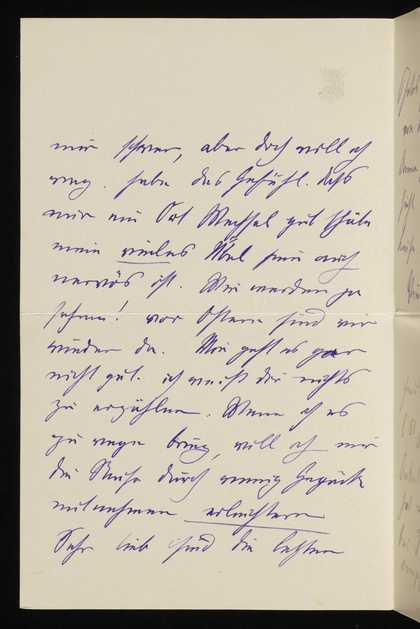 mir schwer, aber doch will ich
weg. habe das Gefühl. dass
mir ein Ort Wechsel gut thäte
mein vieles Übel sein auch
nervös ist. Wir werden ja
sehen! vor Ostern sind wir
wieder da. Mir geht es gar
nicht gut. ich weiß dir nichts
zu erzählen. Wenn ich es
zu wege bring, will ich mir
die Reise durch wenig Gepäck
mitnehmen erleichtern
Sehr lieb sind die letzten